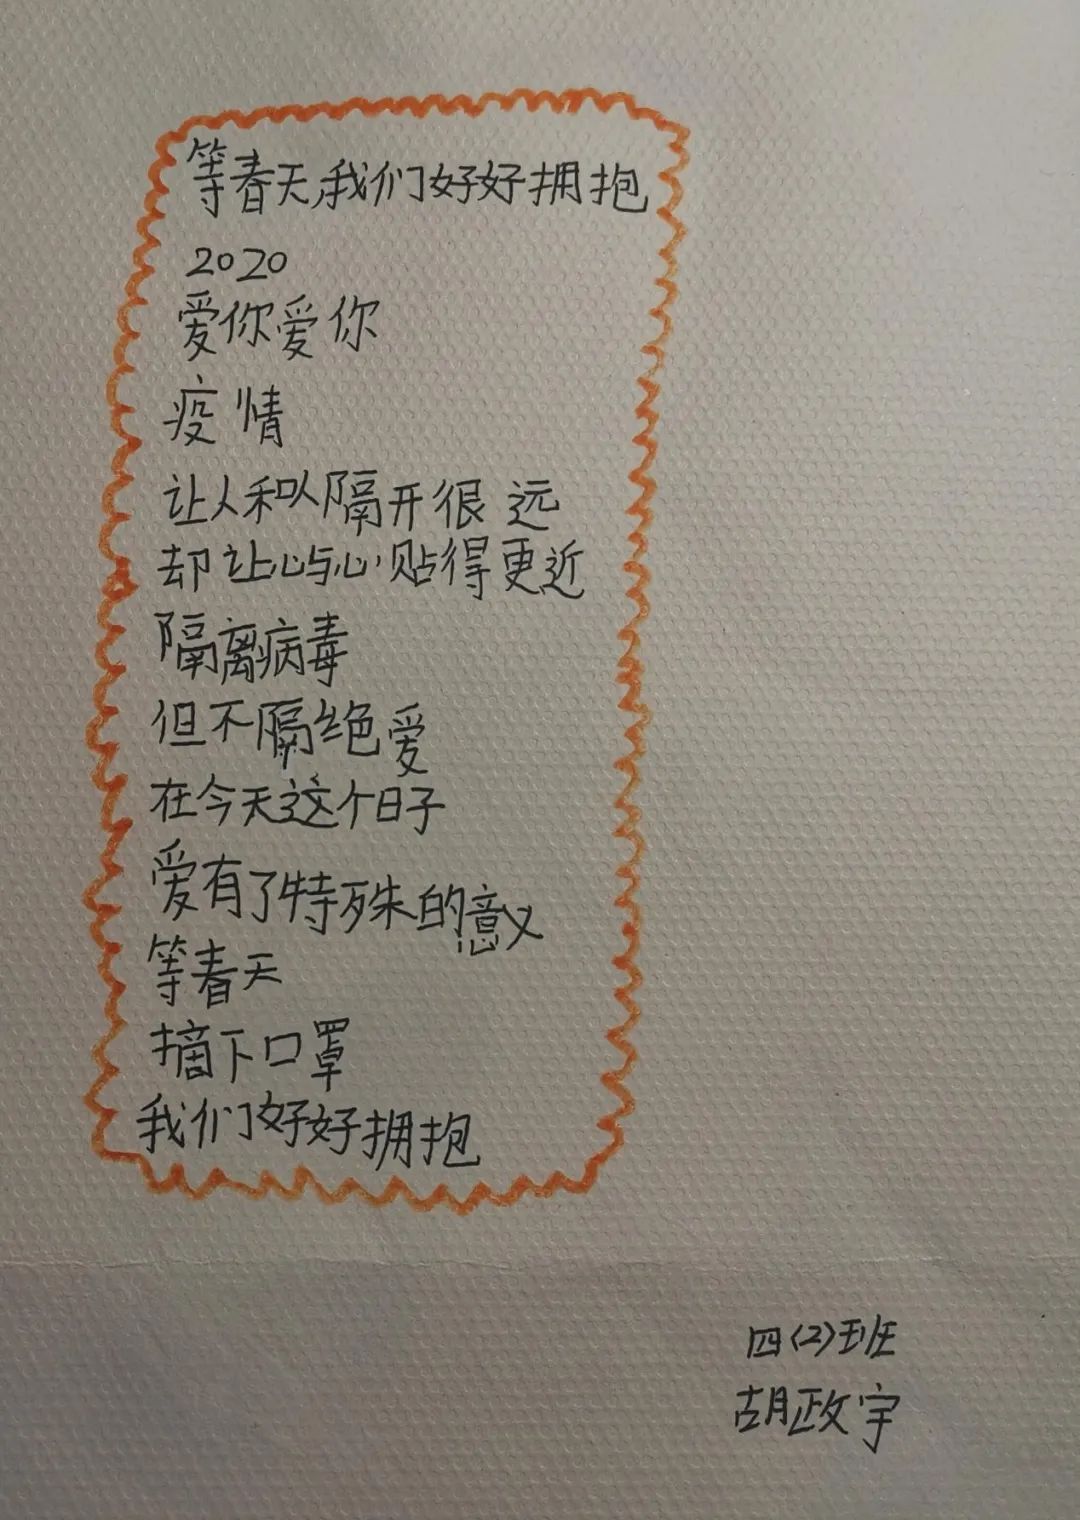 等春天,我们好好拥抱
2020
爱你爱你
疫情
让人和人隔开很远
却让心与心贴得更近
隔离病毒
但不隔绝爱
在今天这个日子
爱有了特殊的意义
等春天
摘下口罩
我们好好拥抱
四(2)班
胡政宇